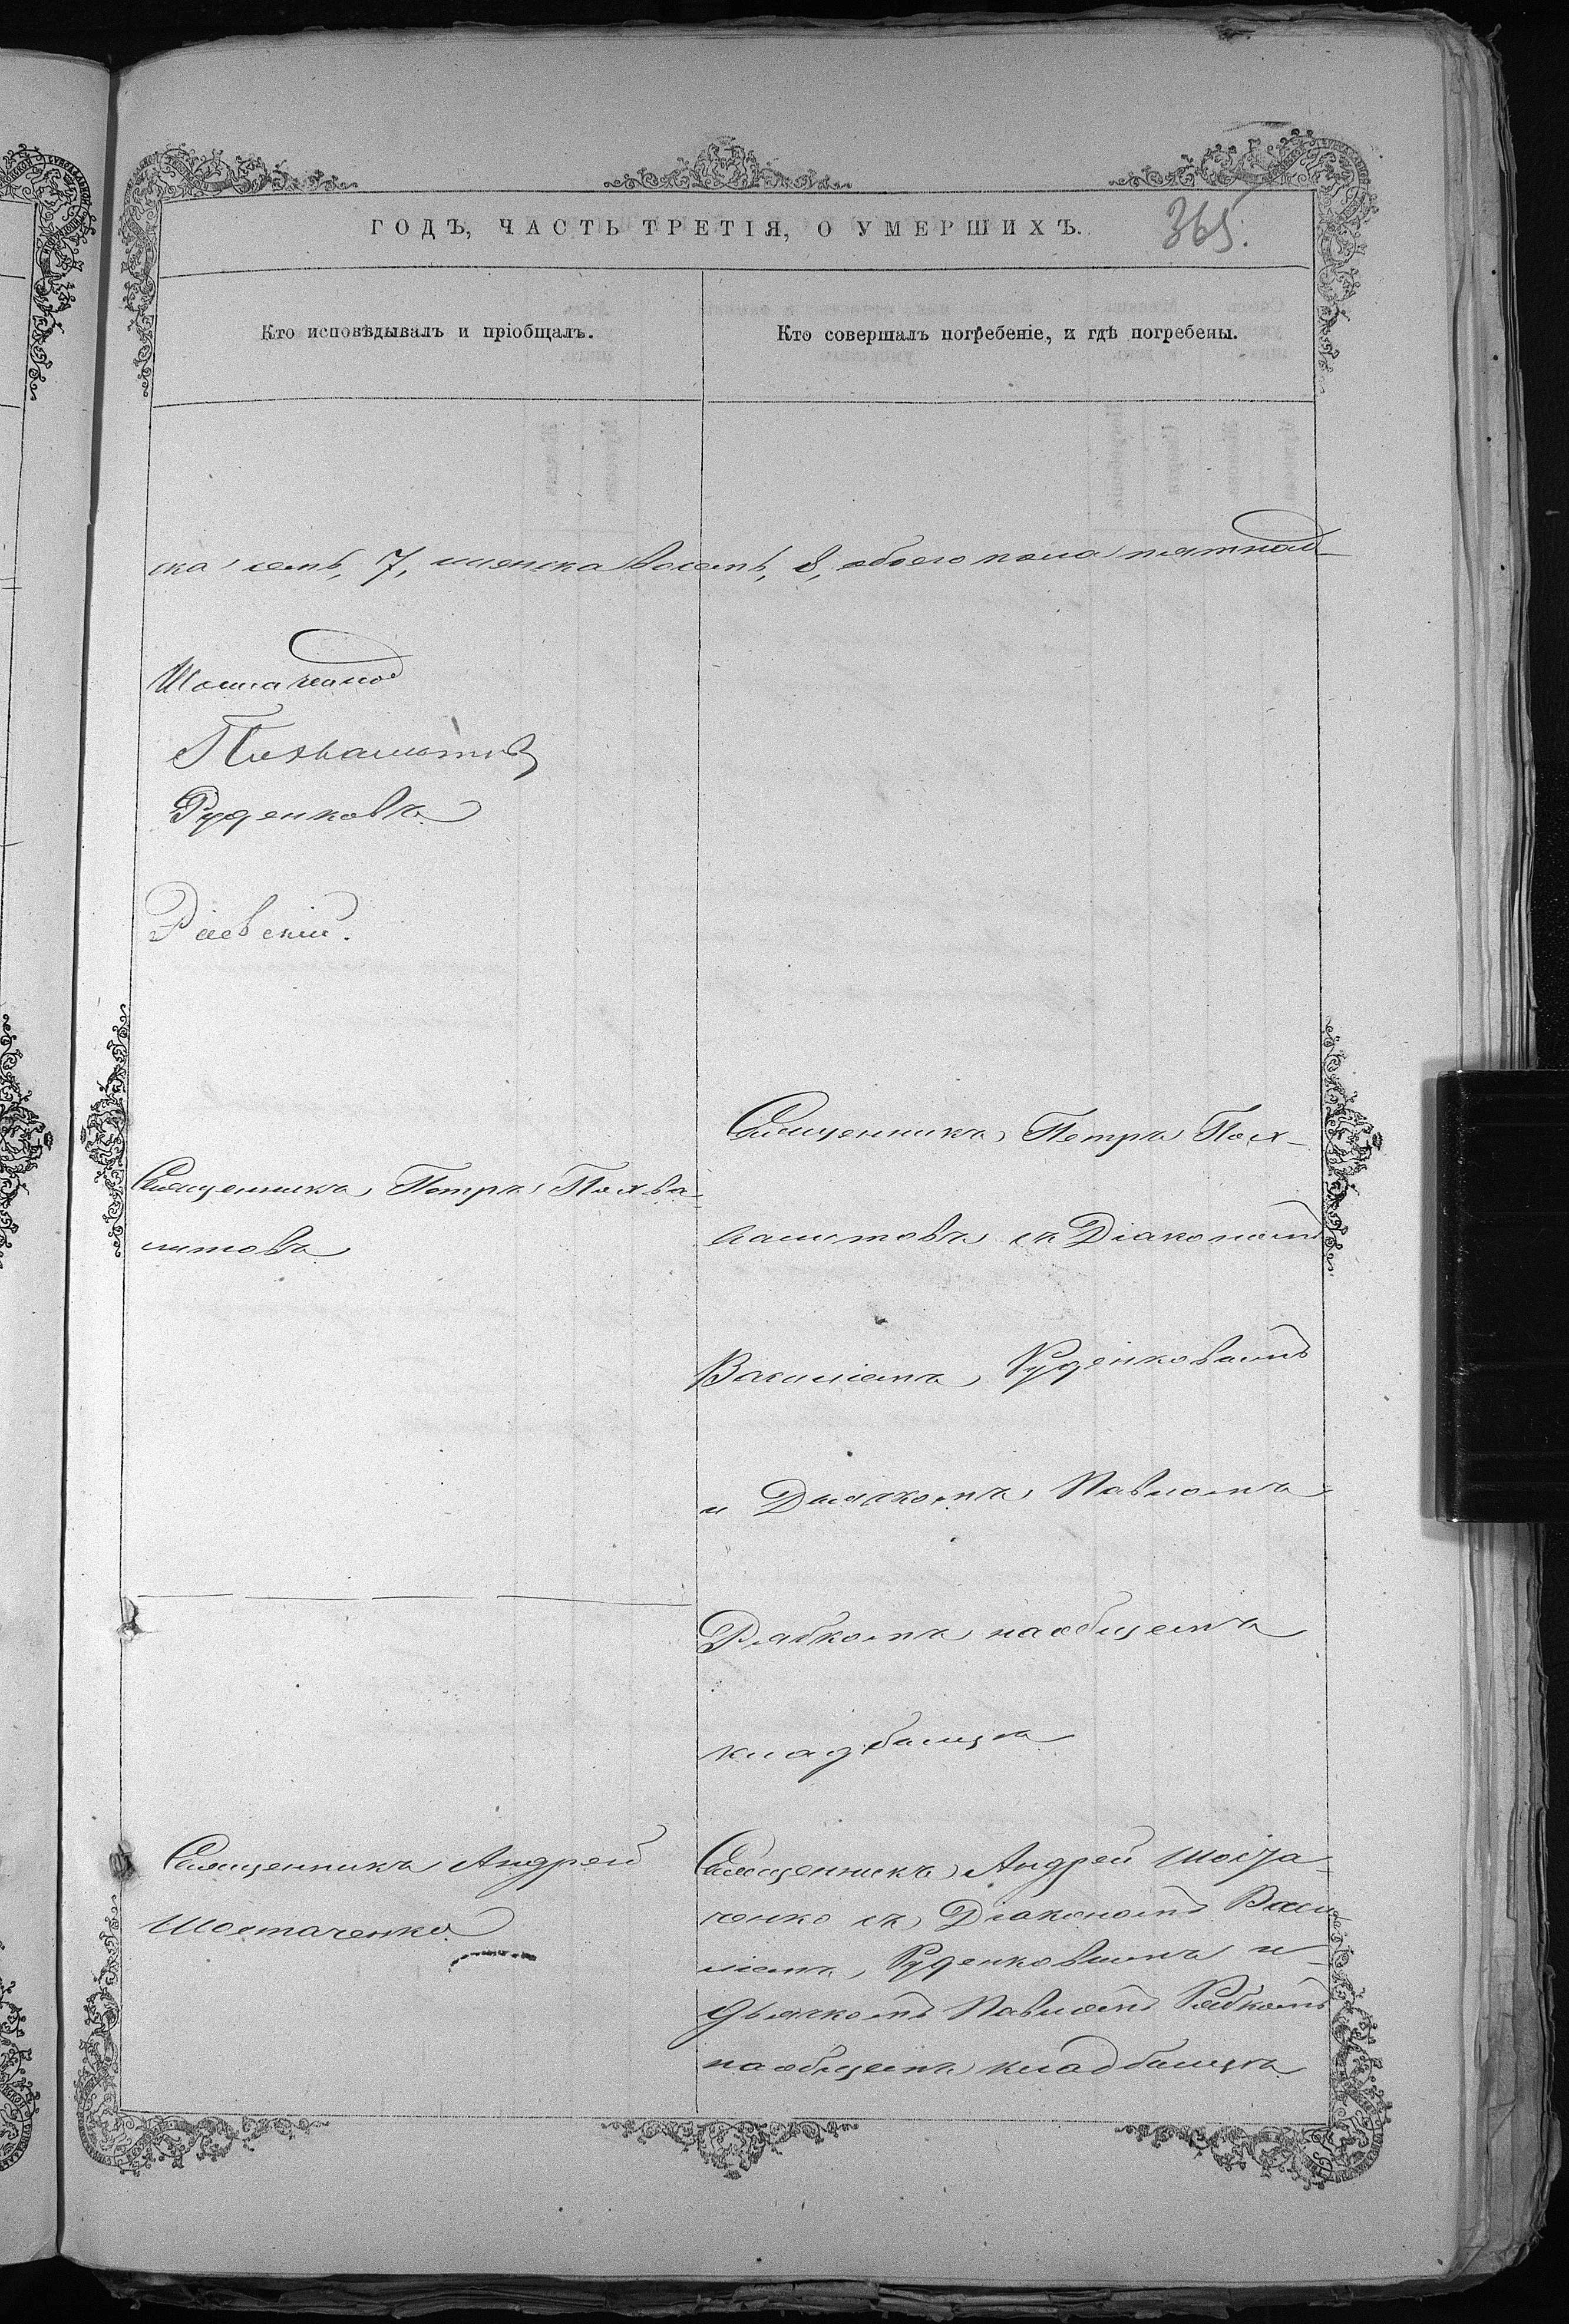 ГОДЪ, ЧАСТЬ ТРЕТІЯ, О УМЕРШИХЪ.
365.
Кто исповѣдывалъ и пріобщалъ.
Кто совершалъ погребеніе, и гдѣ погребены.
ска семь, 7, женска восемь, 8, обоего пола пятнад-
Похвалитовъ
Руденковъ
Раевскій.
Священникъ Петръ Похва-
литовъ
Священникъ Петръ Пох-
валитовъ съ Діакономъ
Василіемъ Руденковымъ
и Дьячкомъ Павломъ
Рябкомъ на общемъ
кладбищѣ
Священникъ Андрей
Шостаченко
Священникъ Андрей Шоста-
ченко съ Діакономъ Васи-
ліемъ Руденковымъ и
дьячкомъ Павломъ Рябкомъ
на общемъ кладбищѣ